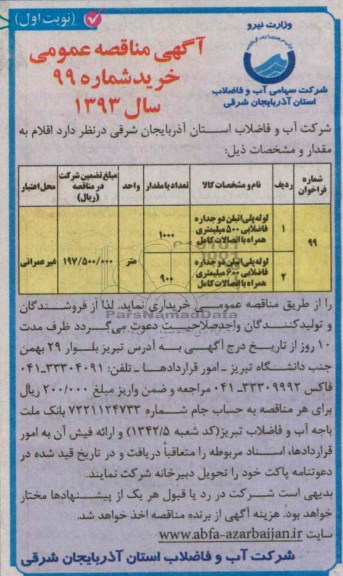 (نوبت اول)
وزارت نیرو
شرکت سهامی آب و فاضلاب
استان آذربایجان شرقی
آگهی مناقصه عمومی
خرید شماره ۹۹
سال ۱۳۹۳
شرکت آب و فاضلاب استان آذربایجان شرقی درنظر دارد اقلام به
مقدار و مشخصات ذیل:
شماره فراخوان ردیف نام و مشخصات کالا تعداد یا مقدار واحد مبلغ تضمین شرکت در مناقصه (ریال) محل اعتبار
۹۹ ۱ لوله پلی اتیلن دو جداره فاضلابی ۵۰۰ میلیمتری همراه با اتصالات کامل ۱۰۰۰ متر ۱۹۷/۵۰۰/۰۰۰ غیر عمرانی
۲ لوله پلی اتیلن دو جداره فاضلابی ۶۰۰ میلیمتری همراه با اتصالات کامل ۹۰۰
را از طریق مناقصه عمومی خریداری نماید. لذا از فروشندگان
و تولیدکنندگان واجدصلاحیت دعوت می‌گردد ظرف مدت
۱۰ روز از تاریخ درج آگهی به آدرس تبریز بلوار ۲۹ بهمن
جنب دانشگاه تبریز ـ امور قراردادها ـ تلفن: ۳۳۳۰۴۰۹۱-۰۴۱
فاکس ۳۳۳۰۹۹۹۲-۰۴۱ مراجعه و ضمن واریز مبلغ ۲۰۰/۰۰۰ ریال
برای هر مناقصه به حساب جام شماره ۷۲۲۱۱۲۴۷۳۳ بانک ملت
باجه آب و فاضلاب تبریز(کد شعبه ۱۳۴۲/۵) و ارائه فیش آن به امور
قراردادها، اسناد مربوطه را متعاقباً دریافت و در تاریخ قید شده در
دعوتنامه پاکت خود را تحویل دبیرخانه شرکت نمایند.
بدیهی است شرکت در رد یا قبول هر یک از پیشنهادها مختار
خواهد بود. هزینه آگهی از برنده مناقصه اخذ خواهد شد.
سایت www.abfa-azarbaijan.ir
شرکت آب و فاضلاب استان آذربایجان شرقی